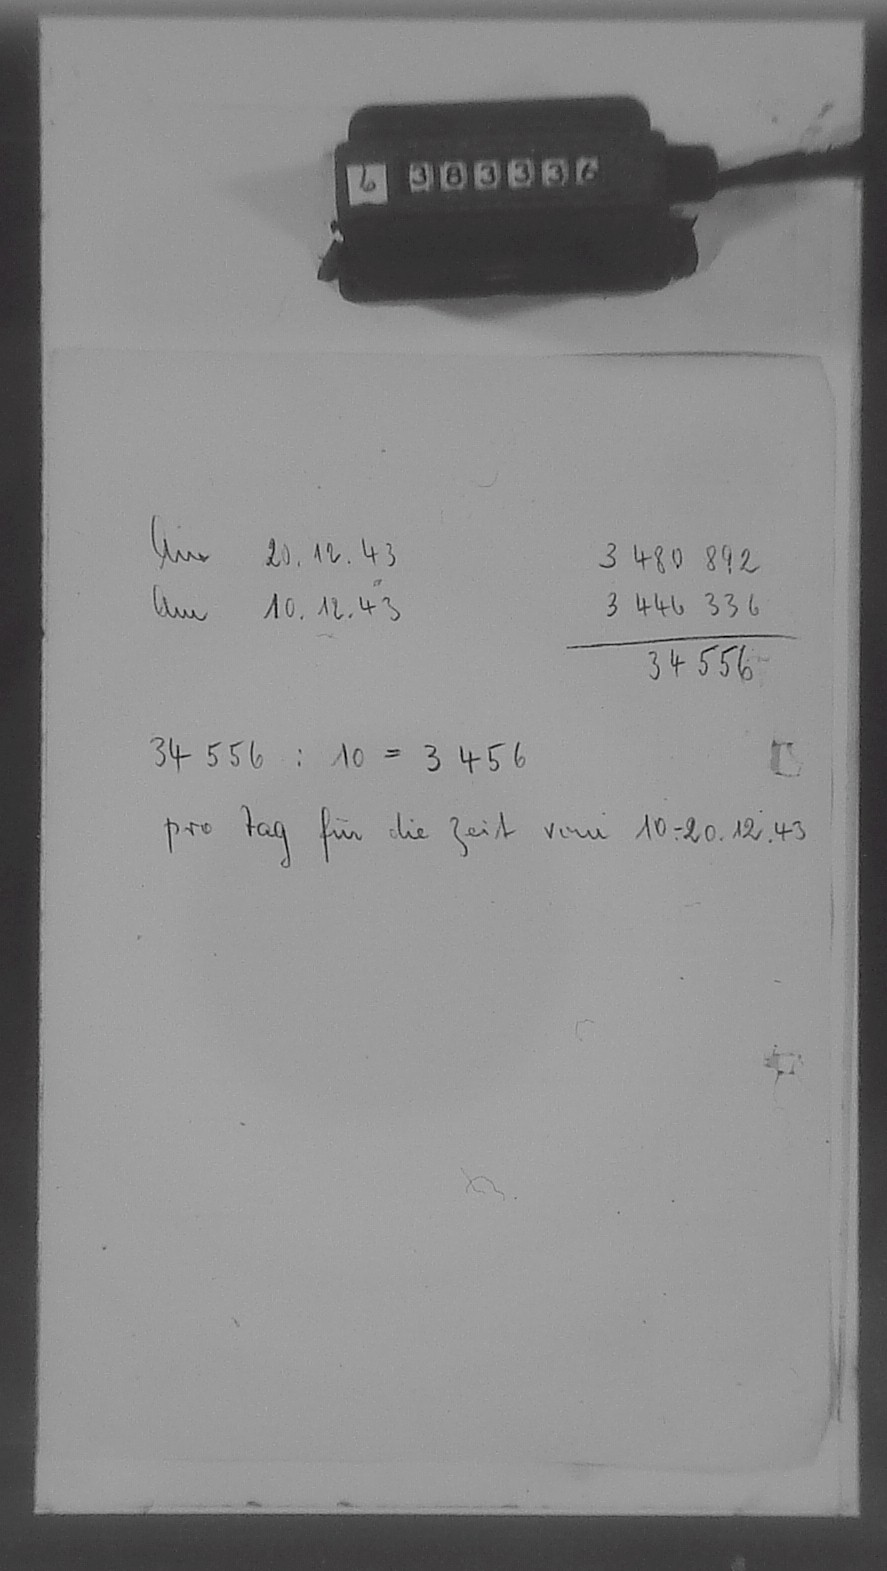 6 383336
Am 20.12.43 3 480 892
Am 10.12.43 3 446 336
34 556
34 556 : 10 = 3 456
pro Tag für die Zeit vom 10.-20.12.43